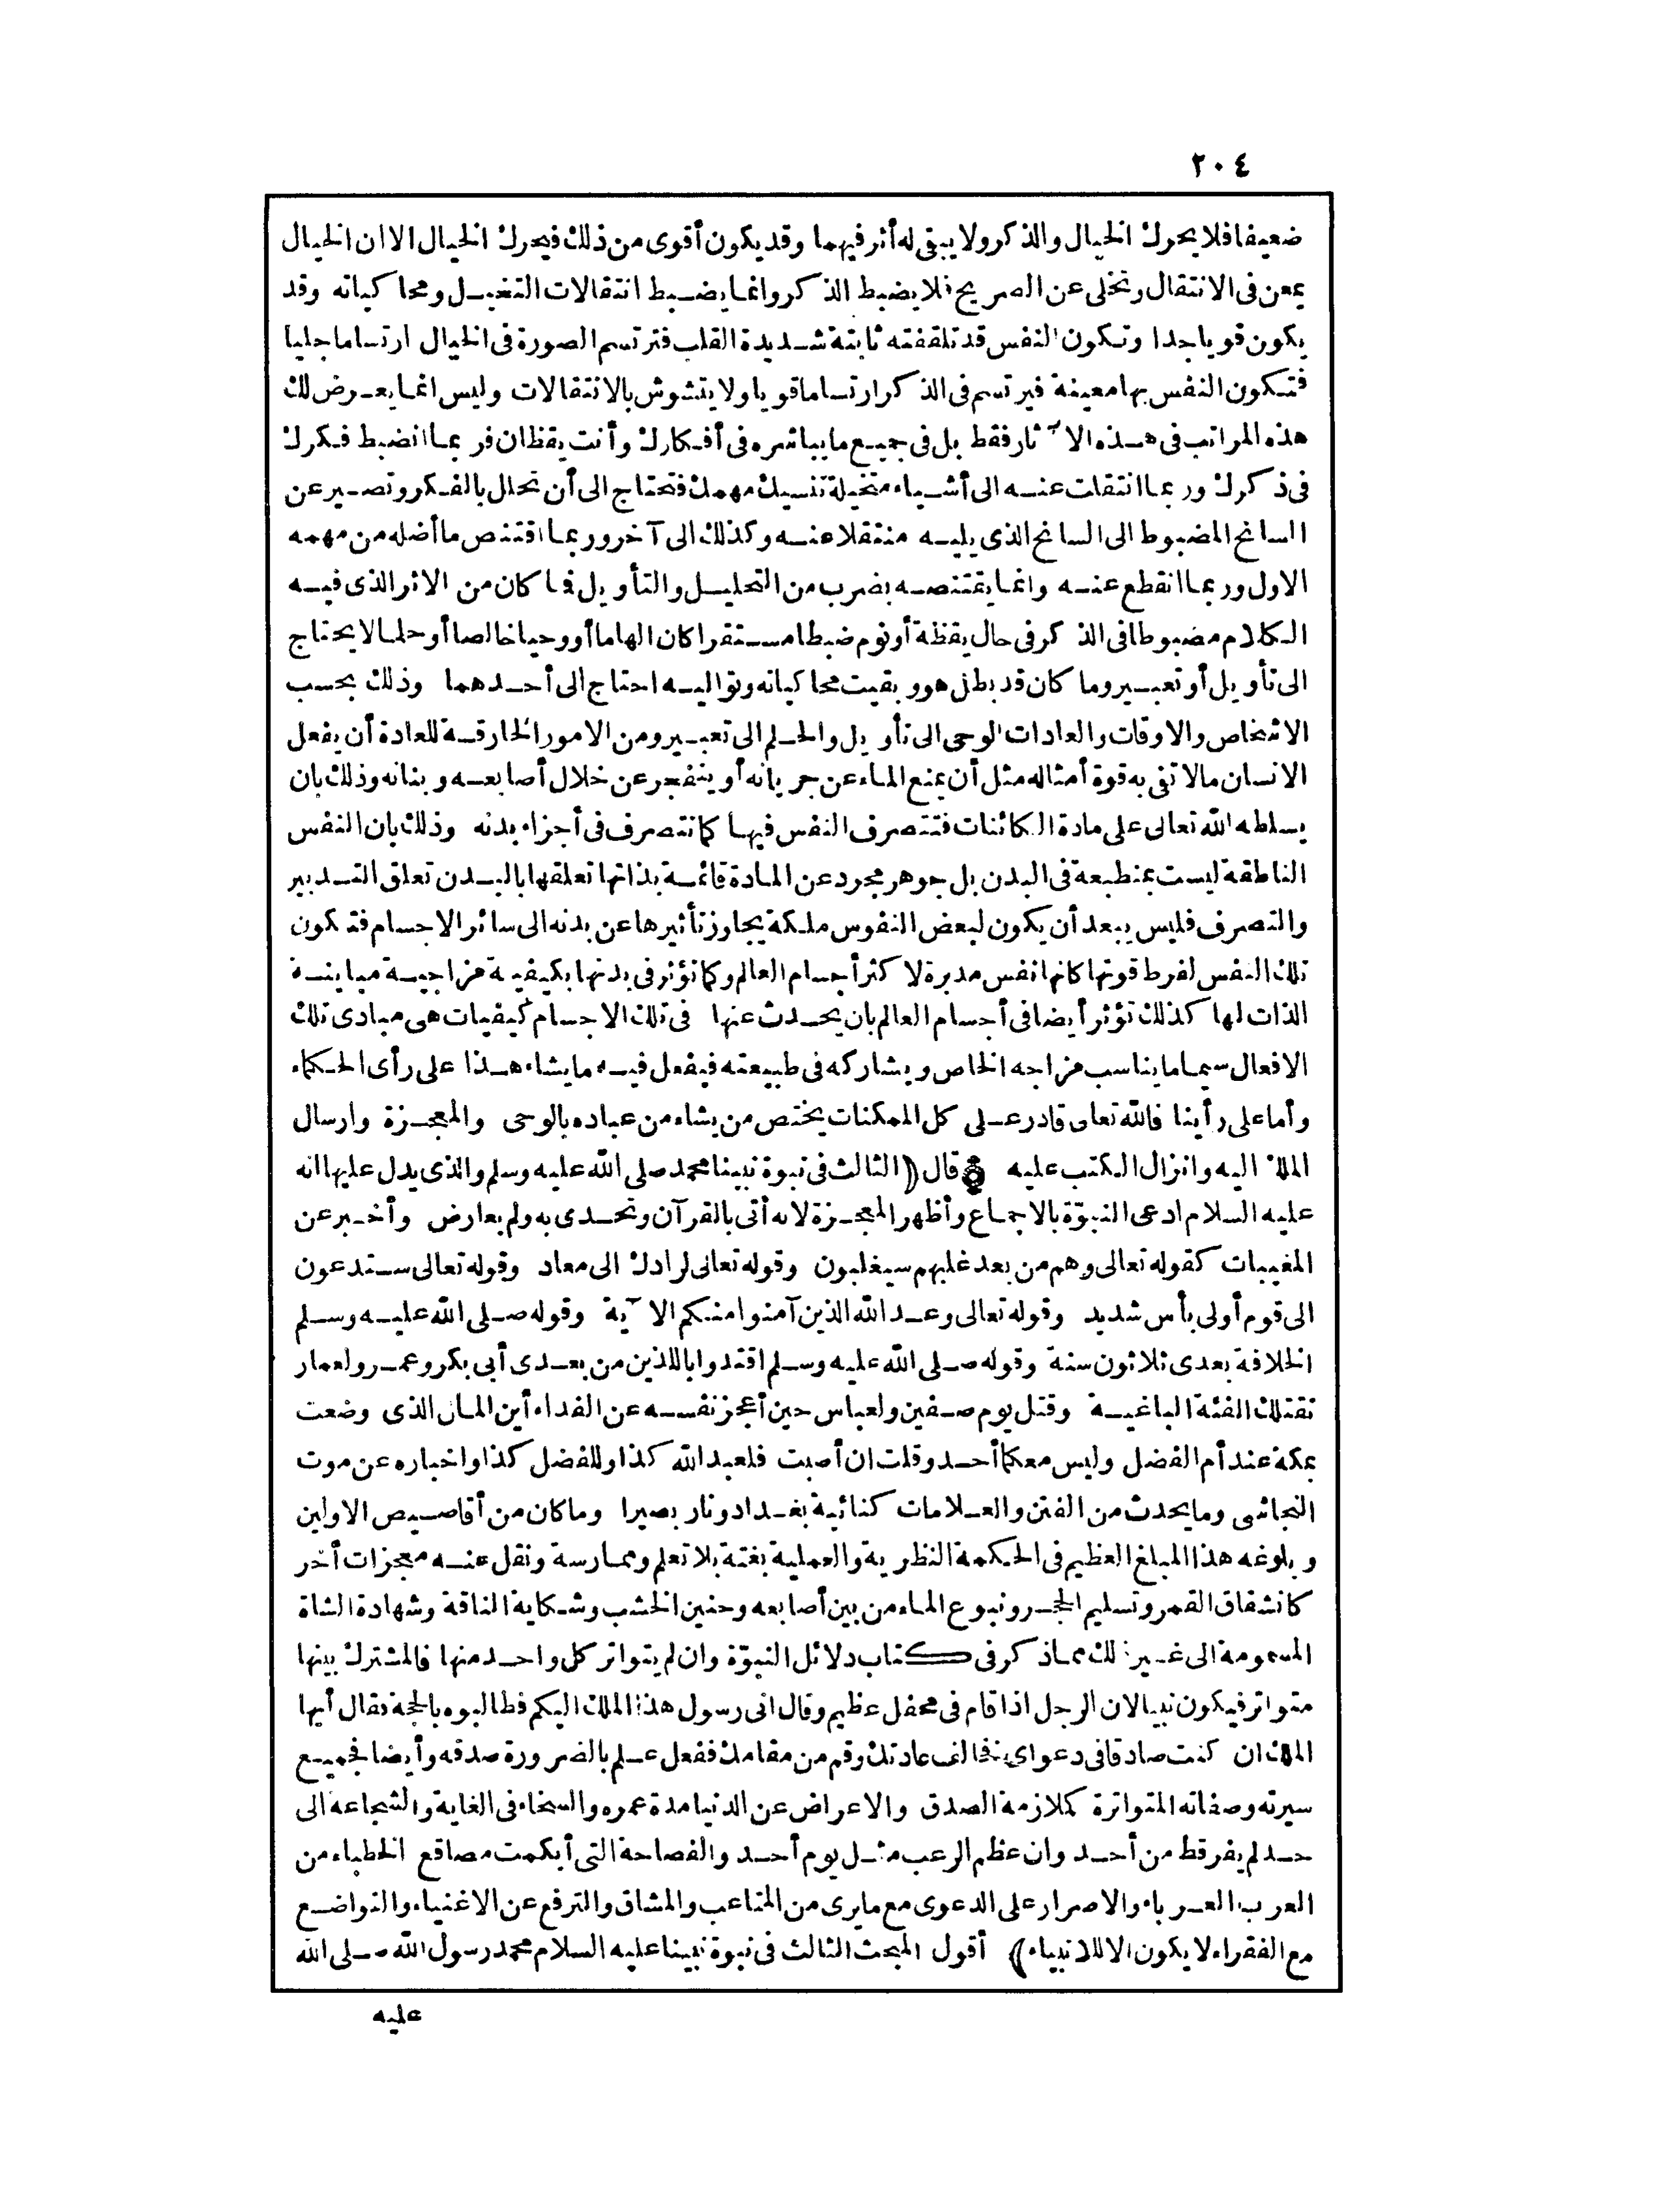 ٢٠٤
ضعيفا فلا يحرك الخيال والذكر ولا يبقى له أثر فيهما وقد يكون أقوى من ذلك فيحرك الخيال الا ان الخيال
يمعن فى الانتقال وتخلى عن الصريح فلا يضبط الذكر وانما يضبط انتقالات التخيل ومحاكياته وقد
يكون قويا جدا وتكون النفس قد تلقفته ثابتة شديدة القلب فترتسم الصورة فى الخيال ارتساما جليا
فتكون النفس بها معينة فيرتسم فى الذكر ارتساما قويا ولا يتشوش بالانتقالات وليس انما يعرض لك
هذه المراتب فى هذه الآثار فقط بل فى جميع ما يباشره فى أفكارك وأنت يقظان فربما انضبط فكرك
فى ذكرك وربما انتقلت عنه الى أشياء متخيلة تنسيك مهمك فتحتاج الى أن تحلل بالفكر وتصير عن
السانح المضبوط الى السانح الذى يليه منتقلا عنه وكذلك الى آخر وربما اقتنص ما أضله من مهمه
الاول وربما انقطع عنه وانما يقتنصه بضرب من التحليل والتأويل فما كان من الاثر الذى فيه
الكلام مضبوطا فى الذكر فى حال يقظة أو نوم ضبطا مستقرا كان الهاما أو وحيا خالصا أو حلما لا يحتاج
الى تأويل أو تعبير وما كان قد بطل هو وبقيت محاكياته وتواليه احتاج الى أحدهما وذلك بحسب
الاشخاص والاوقات والعادات الوحى الى تأويل والحلم الى تعبير ومن الامور الخارقة للعادة أن يفعل
الانسان ما لا تفى به قوة أمثاله مثل أن يمنع الماء عن جريانه أو يتفجر عن خلال أصابعه وبنانه وذلك بان
يسلطه الله تعالى على مادة الكائنات فتتصرف النفس فيها كما تتصرف فى أجزاء بدنه وذلك بان النفس
الناطقة ليست بمنطبعة فى البدن بل جوهر مجرد عن المادة قائمة بذاتها تعلقها بالبدن تعلق التدبير
والتصرف فليس ببعد أن يكون لبعض النفوس ملكة يجاوز تأثيرها عن بدنه الى سائر الاجسام فتكون
تلك النفس لفرط قوتها كانها نفس مدبرة لاكثر أجسام العالم وكما تؤثر فى بدنها بكيفية مزاجية مباينة
الذات لها كذلك تؤثر أيضا فى أجسام العالم بان يحدث عنها فى تلك الاجسام كيفيات هى مبادى تلك
الافعال سيما ما يناسب مزاجه الخاص ويشاركه فى طبيعته فيفعل فيه ما يشاء هذا على رأى الحكماء
وأما على رأينا فالله تعالى قادر على كل الممكنات يختص من يشاء من عباده بالوحى والمعجزة وارسال
الملك اليه وانزال الكتب عليه قال (الثالث فى نبوة نبينا محمد صلى الله عليه وسلم والذى يدل عليها انه
عليه السلام ادعى النبوّة بالاجماع وأظهر المعجزة لانه أتى بالقرآن وتحدى به ولم يعارض وأخبر عن
المغيبات كقوله تعالى وهم من بعد غلبهم سيغلبون وقوله تعالى لرادك الى معاد وقوله تعالى ستدعون
الى قوم أولى بأس شديد وقوله تعالى وعد الله الذين آمنوا منكم الآية وقوله صلى الله عليه وسلم
الخلافة بعدى ثلاثون سنة وقوله صلى الله عليه وسلم اقتدوا باللذين من بعدى أبى بكر وعمر ولعمار
تقتلك الفئة الباغية وقتل يوم صفين ولعباس حين أعجز نفسه عن الفداء أين المال الذى وضعت
بمكة عند أم الفضل وليس معكما أحد وقلت ان أصبت فلعبد الله كذا وللفضل كذا واخباره عن موت
النجاشى وما يحدث من الفتن والعلامات كنائبة بغداد ونار بصيرا وما كان من أقاصيص الاولين
وبلوغه هذا المبلغ العظيم فى الحكمة النظرية والعملية بغتة بلا تعلم وممارسة ونقل عنه معجزات أخر
كانشقاق القمر وتسليم الحجر ونبوع الماء من بين أصابعه وحنين الخشب وشكاية الناقة وشهادة الشاة
المسمومة الى غير ذلك مما ذكر فى كتاب دلائل النبوّة وان لم يتواتر كل واحد منها فالمشترك بينها
متواتر فيكون نبيا لان الرجل اذا قام فى محفل عظيم وقال انى رسول هذا الملك اليكم فطالبوه بالحجة فقال أيها
الملك ان كنت صادقا فى دعواى فخالف عادتك وقم من مقامك ففعل علم بالضرورة صدقه وأيضا فجميع
سيرته وصفاته المتواترة كملازمة الصدق والاعراض عن الدنيا مدة عمره والسخاء فى الغاية والشجاعة الى
حد لم يفر قط من أحد وان عظم الرعب مثل يوم أحد والفصاحة التى أبكمت مصاقع الخطباء من
العرب العرباء والاصرار على الدعوى مع ما يرى من المتاعب والمشاق والترفع عن الاغنياء والتواضع
مع الفقراء لا يكون الا للانبياء) أقول المبحث الثالث فى نبوة نبينا عليه السلام محمد رسول الله صلى الله
عليه